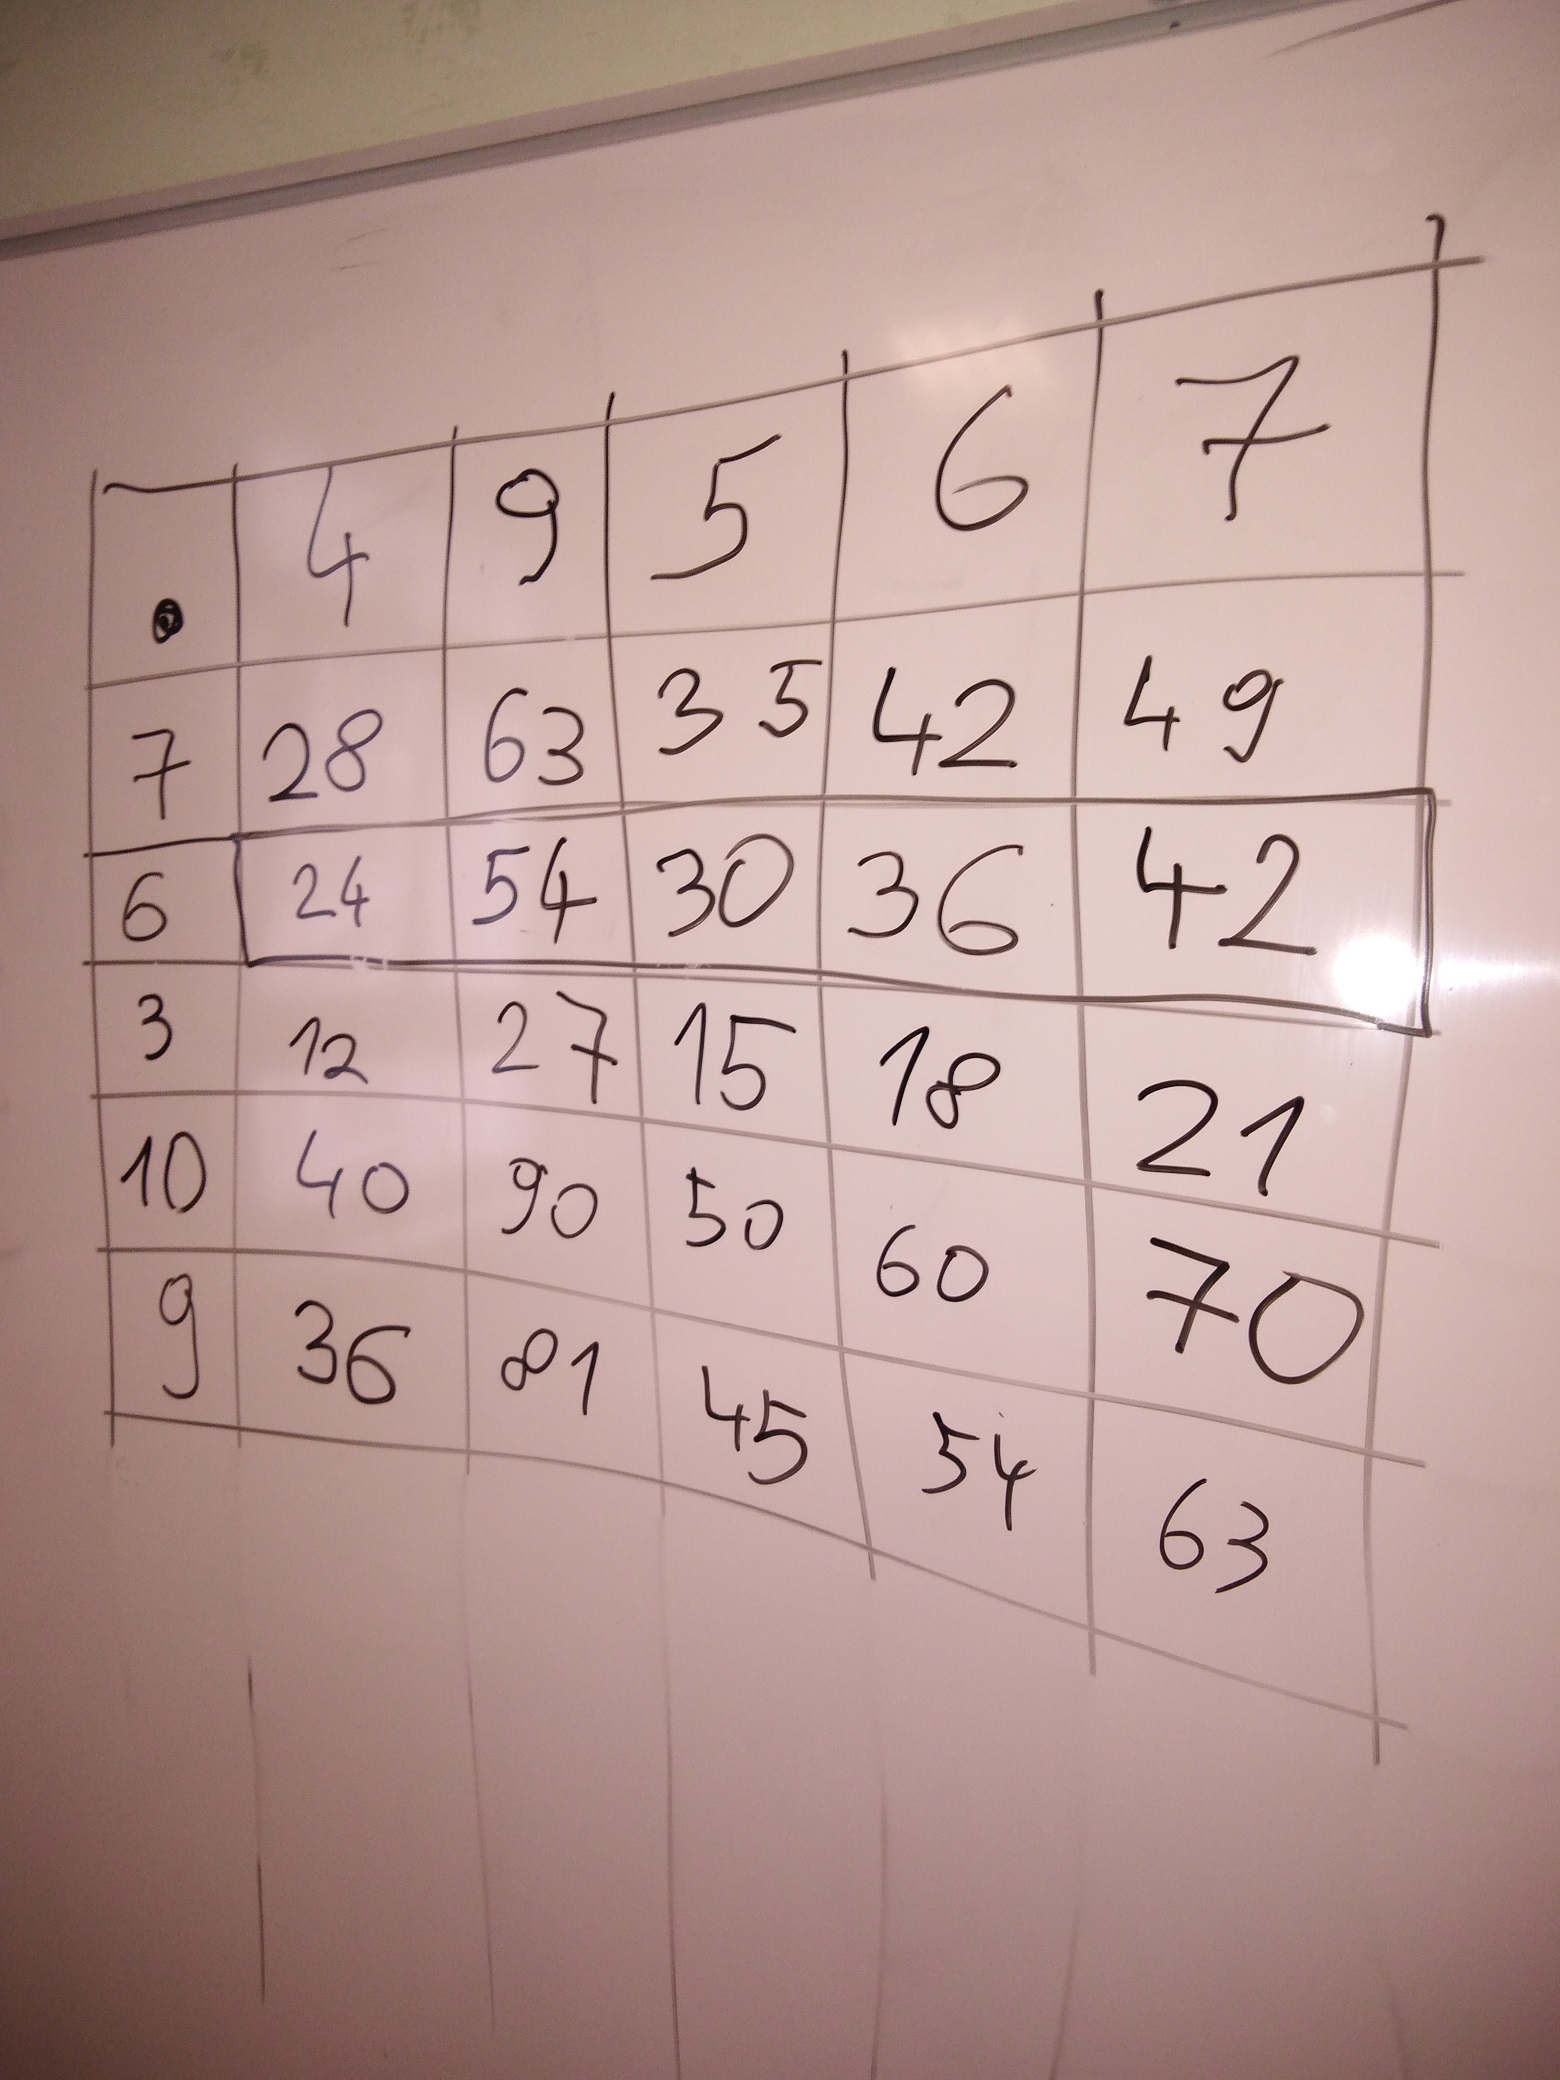 • 4 9 5 6 7
7 28 63 35 42 49
6 24 54 30 36 42
3 12 27 15 18 21
10 40 90 50 60 70
9 36 81 45 54 63